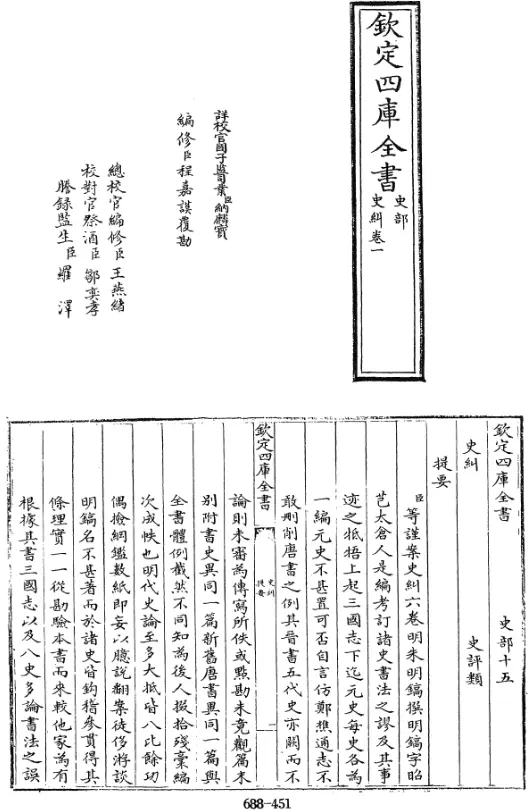 欽定四庫全書
史部
史糾卷一
詳校官國子監司業臣納麟寶
編修臣程嘉謨覆勘
總校官編修臣王燕緒
校對官祭酒臣鄒奕孝
謄錄監生臣羅澤
欽定四庫全書 史部十五
史糾 史評類
提要
臣等謹案史糾六卷明朱明鎬撰明鎬字昭
芑太倉人是編考訂諸史書法之謬及其事
迹之牴牾上起三國志下迄元史每史各為
一編元史不甚置可否自言仿鄭樵通志不
敢刪削唐書之例其晉書五代史亦闕而不
欽定四庫全書
史糾
提要
論則未審為傳寫所佚或點勘未竟觀篇末
別附書史異同一篇新舊唐書異同一篇與
全書體例截然不同知為後人掇拾殘稾編
次成帙也明代史論至多大抵皆八比餘功
偶撿綱鑑數紙即妄以臆說翻案徒侈游談
明鎬名不甚著而於諸史皆鉤稽參貫得其
條理實一一從勘驗本書而來較他家為有
根據其書三國志以及八史多論書法之誤
688-451